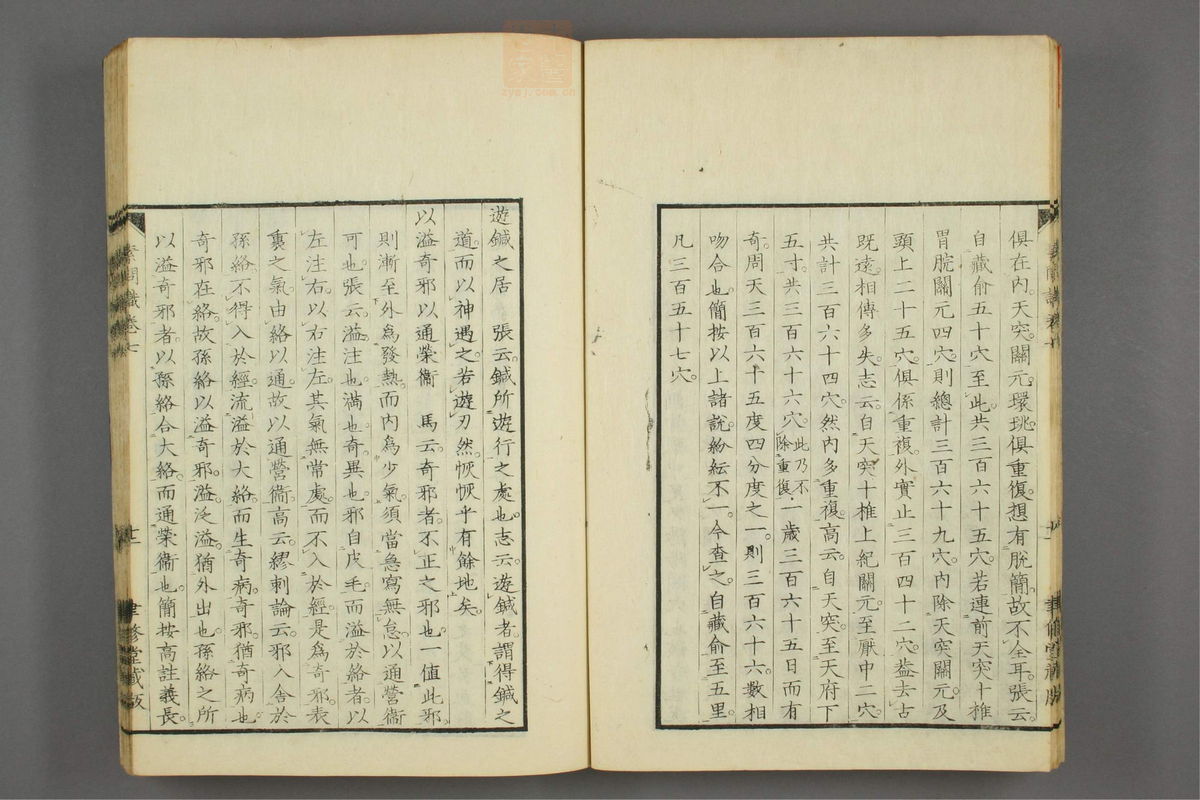 俱在内。天突。關元。環珧。俱重復。想有脫簡。故不全耳。張云。
自藏俞五十穴。至此。共三百六十五穴。若連前天突十椎
胃脘關元四穴。則總計三百六十九穴。内除天突關元。及
頭上二十五穴。俱係重複。外實止三百四十二穴。葢去古
既遠。相傳多失。志云。自天突十椎上紀關元。至厭中二穴
共計三百六十四穴。然内多重復。高云。自天突。至天府下
五寸。共三百六十六穴。此乃不除重復。一歲三百六十五日而有
奇。周天三百六十五度四分度之一。則三百六十六數相
吻合也。簡按以上諸說。紛紜不一。今查之。自藏俞至五里。
凡三百五十七穴。
遊鍼之居　張云。鍼所遊行之處也。志云。遊鍼者。謂得鍼之
道。而以神遇之。若遊刃然。恢恢乎有餘地矣。
以溢奇邪以通榮衞　馬云。奇邪者。不正之邪也。一値此邪
則漸至外爲發熱。而内爲少氣。須當急寫無怠。以通營衞
可也。張云。溢。注也。滿也。奇。異也。邪自皮毛。而溢於絡者。以
左注右。以右注左。其氣無常處。而不入於經。是爲奇邪。表
裏之氣。由絡以通。故以通營衞。高云。繆刺論云。邪入舍於
孫絡。不得入於經。流溢於大絡。而生奇病。奇邪。猶奇病也。
奇邪在絡。故孫絡以溢奇邪。溢。泛溢。猶外出也。孫絡之所
以溢奇邪者。以孫絡合大絡。而通榮衞也。簡按高註義長。
素問識卷七
十二
聿修堂藏版